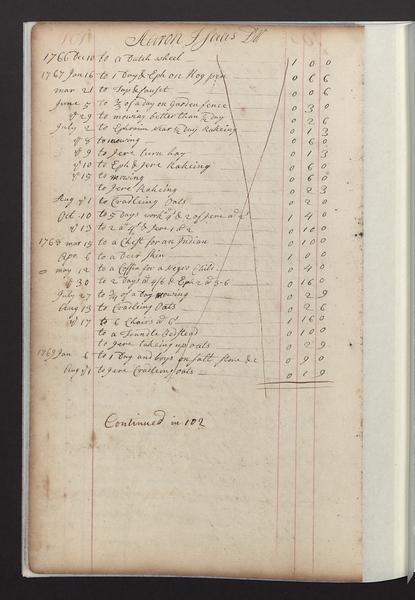 Aaron Isaacs Dr
1766 Dec 10 to a Dutch wheel 1 0 0
1767 Jan 16 to 1 Day & Eph on Hog pen 0 6 6
mar 21 to Tap & fauset 0 0 6
June 5 to 2/3 of a day on Garden fence 0 3 0
29 to mowing better than ½ day 0 2 6
July 2 to Ephraim near ½ Day Rakeing 0 1 3
8 to mowing 0 6 0
9 to Jere turn hay 0 1 3
10 to Eph & Jere Rakeing 0 6 0
15 to mowing 0 6 0
to Jere Rakeing 0 2 3
Aug 1 to Cradleing Oats 0 2 0
Oct 10 to 5 Days work & 2 of Jere 1 4 0
13 to 2 & Jere 1 0 10 0
1768 mar 15 to a Chest for an Indian 0 10 0
Apr 6 to a Deer Skin 1 0 0
may 12 to a Coffin for a negro Child 0 4 0
30 to 2 Days & Eph 2 0 16 0
July 27 to ¾ of a Day mowing 0 2 9
Aug 13 to Cradleing Oats 0 2 6
17 to 6 Chairs 1 16 0
to a Trundle Bedstead 0 10 0
to Jere takeing up oats 0 2 9
1769 Jan 6 to 1 Day and boys on Salt &c 0 9 0
Aug 1 to Jere Cradleing Oats 0 1 9
Continued in 102